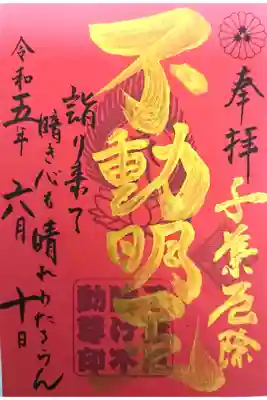 奉拝
千葉厄除
不動明王
詣り来て
暗き心も晴れわたるらん
令和五年
六月
十日